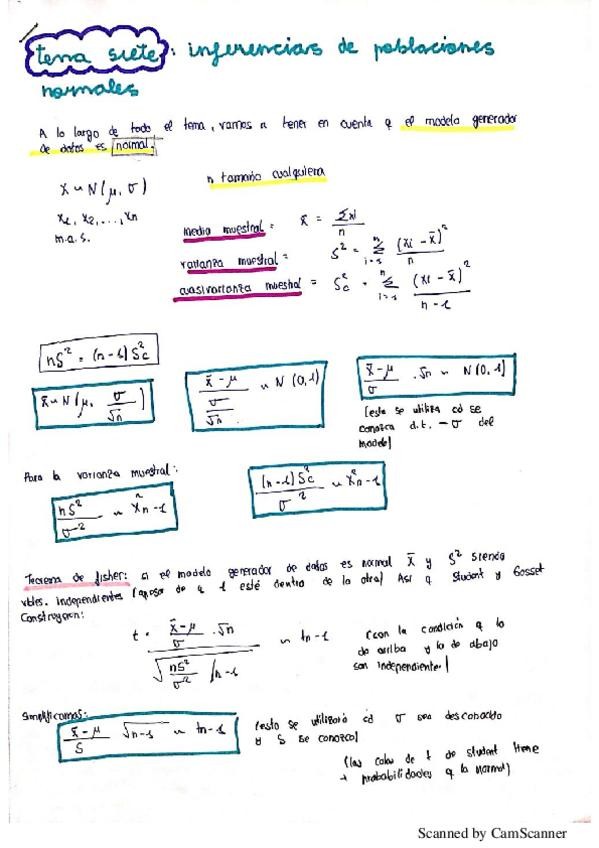 tema siete: inferencias de poblaciones
normales
A lo largo de todo el tema, vamos a tener en cuenta q el modelo generador
de datos es normal.
X ~ N(μ, σ)
n tamaño cualquiera
x₁, x₂, ..., xn
m.a.s.
media muestral = x̄ = Σxi / n
varianza muestral = S² = Σ (i=1, n) (xi - x̄)² / n
cuasivarianza muestral = Sc² = Σ (i=1, n) (xi - x̄)² / n-1
nS² = (n-1)Sc²
x̄ ~ N(μ, σ/√n)
(x̄ - μ) / (σ/√n) ~ N(0,1)
(x̄ - μ)/σ · √n ~ N(0,1)
(esto se utiliza cd se
conozca d.t. - σ del
modelo)
Para la varianza muestral:
nS²/σ² ~ X²n-1
(n-1)Sc²/σ² ~ X²n-1
Teorema de fisher: si el modelo generador de datos es normal X̄ y S² siendo
vbles. independientes (apesar de q 1 esté dentro de la otra) Así q Student y Gosset
Construyeron:
t = ((x̄ - μ)/σ · √n) / √(nS²/σ² / n-1) ~ tn-1
(con la condición q lo
de arriba y lo de abajo
son independiente)
Simplificamos:
(x̄ - μ)/S √n-1 ~ tn-1
(esto se utilizará cd σ sea descono
y S se conozca)
(las colas de t de student tiene
+ probabilidades q la normal)
Scanned by CamScanner